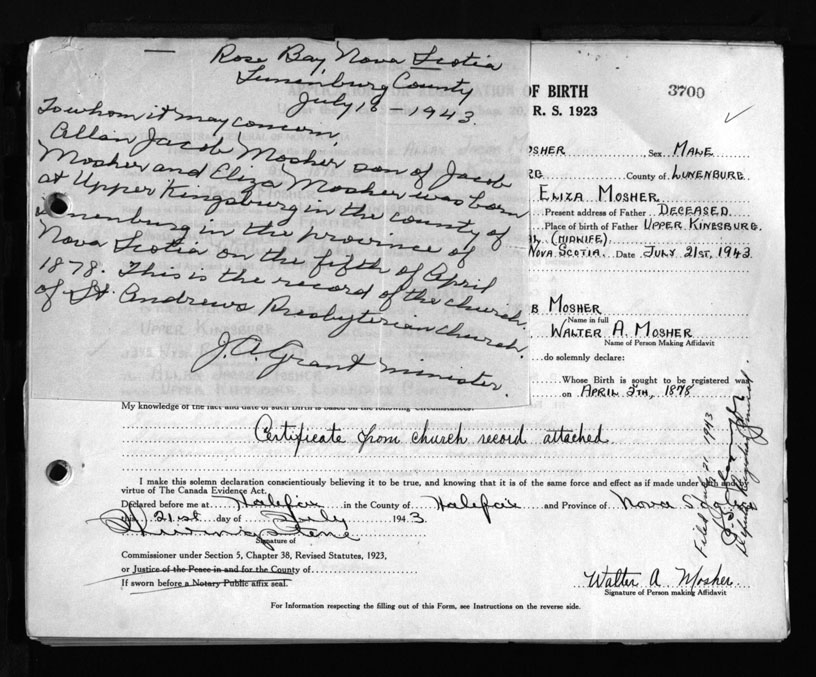 Rose Bay Nova Scotia
Lunenburg County
July 18 - 1943.
To whom it may concern,
Allan Jacob Mosher son of Jacob
Mosher and Eliza Mosher was born
at Upper Kingsburg in the county of
Lunenburg in the province of
Nova Scotia on the fifth of April
1878. This is the record of the church
of St. Andrews Presbyterian church.
J. A. Grant minister.
OF BIRTH
3700
R. S. 1923
OSHER Sex MALE
County of LUNENBURG
ELIZA MOSHER
Present address of Father DECEASED
Place of birth of Father UPPER KINGSBURG.
(MIDWIFE)
NOVA SCOTIA. Date JULY 21ST, 1943
B MOSHER
Name in full
WALTER A. MOSHER
Name of Person Making Affidavit
do solemnly declare:
Whose Birth is sought to be registered was
on APRIL 5TH, 1878
My knowledge of the fact and date of such birth is based on the following circumstances:
Certificate from church record attached.
I make this solemn declaration conscientiously believing it to be true, and knowing that it is of the same force and effect as if made under oath and by
virtue of The Canada Evidence Act.
Declared before me at Halifax in the County of Halifax and Province of Nova
this 21st day of July 1943.
Signature of
Commissioner under Section 5, Chapter 38, Revised Statutes, 1923,
or Justice of the Peace in and for the County of
If sworn before a Notary Public affix seal.
Walter A Mosher.
Signature of Person making Affidavit
For Information respecting the filling out of this Form, see Instructions on the reverse side.
Filed July 21 1943
Deputy Registrar General